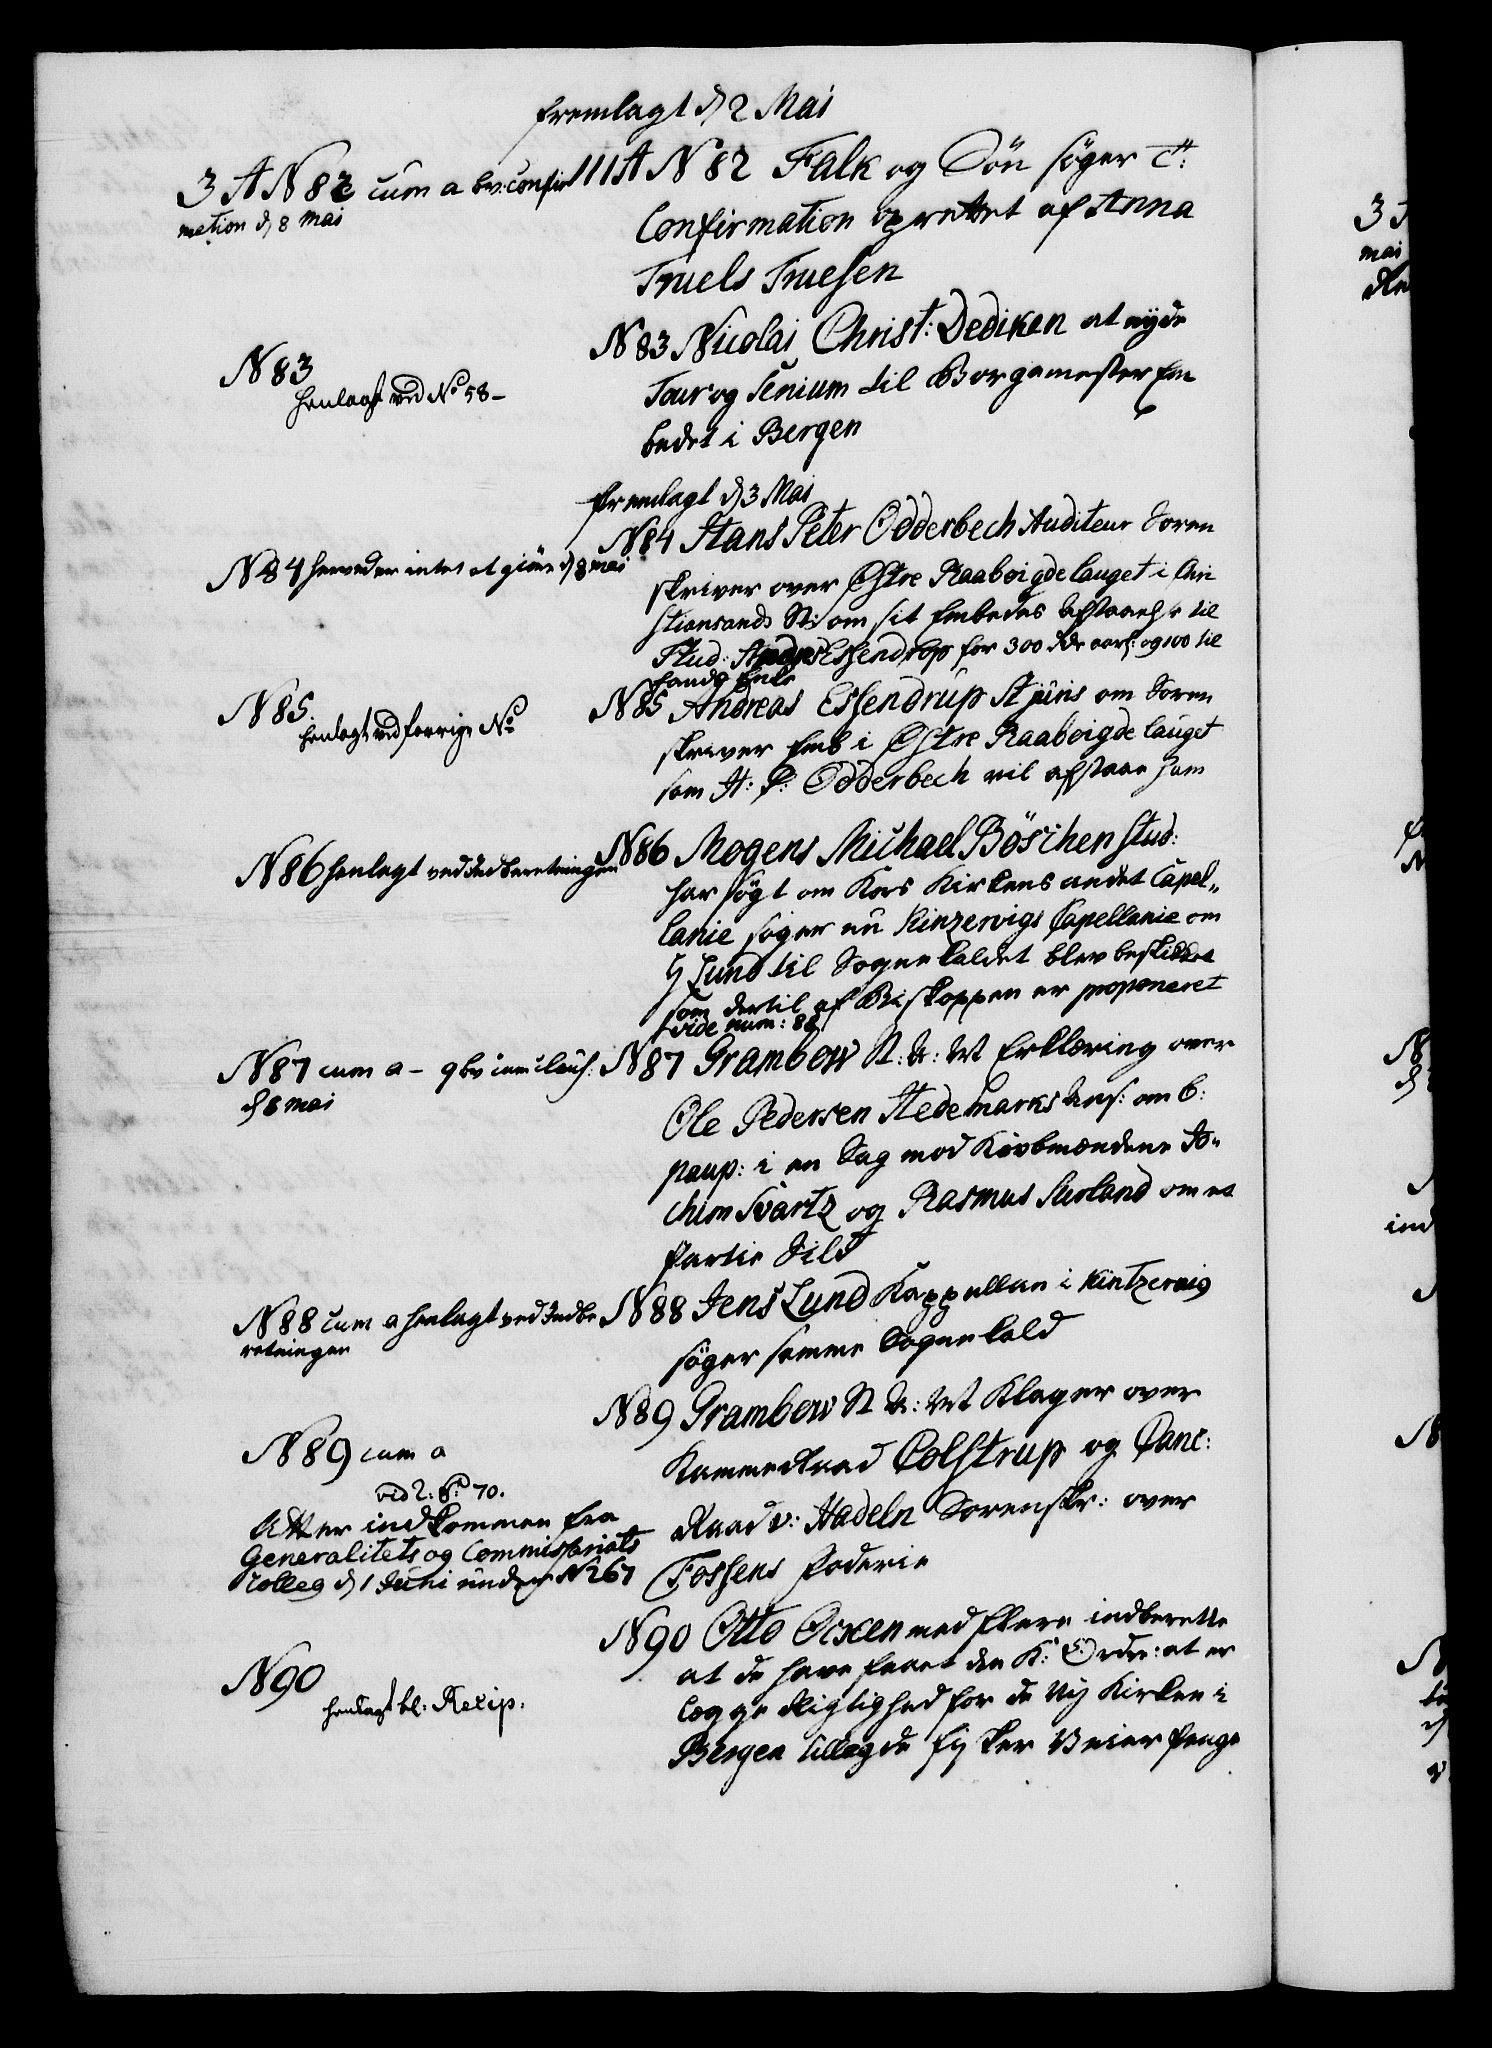 fremlagt d 2 Mai
3 A N 82 cum a bev: confir
mation d 8 mai
111A N 82 Falk og Sön söger
Confirmation oprettet af Anna
Truels Truesen
N 83
henlagt ved No 58-
N 83 Nicolai Christ: Dediken at nyde
Tour og Senium til Borgemester Em
bedet i Bergen
fremlagt d 3 Mai
N 84 herved er intet at giöre d 8 mai
N 84 Hans Peter Odderbech Auditeur Soren
skriver over Østre Raabøigde lauget i Chri
stiansands St: om sit Embedes Afstaaelse til
Stud: Andr: Essendrop for 300 Rdr aarl: og 100 til
hands Enke
N 85
henlagt ved forrige No
N 85 Andreas Essendrup St juris om Soren
skriver Emb i Østre Raabøigde lauget
som H: P: Odderbech vil afstaae ham
N 86 henlagt ved Indberetningen
N 86 Mogens Michael Böschen Stud:
har sögt om Kors Kirkens andet Capel„
lanie söger nu Kinzervigs Capellanie om
H Lund til Sognekaldet blev beskikket
som dertil af Biskoppen er proponeret
vide num: 88
N 87 cum a - gbv cum claus:
d 8 mai
N 87 Grambow St: A: Mt Erklæring over
Ole Pedersen Hedemarks Ans: om b:
paup: i en Sag mod Kiøbmændene Jo„
chim Svartz og Rasmus Surland om et
Partie Sild
N 88 cum a henlagt ved Indbe
retningen
N 88 Jens Lund Kappellan i Kintzervig
söger samme Sognekald
N 89 cum a
vid 2: P: 70.
Atter indkommen fra
Generalitets og Commissariats
Colleg d 1 Juni under N 267
N 89 Grambow St A: Mt Klager over
Kammerraad Colstrup og Canc:
Raad v: Hadeln Sorenskr: over
Fossens Foderie
N 90
henlagt bl: Recip.
N 90 Otto Ocxen med flere indberette
at de have faaet den K: Ordre: at er
lægge Rigtighed for de Nÿ Kirken i
Bergen tillagde fisker Veier Penge